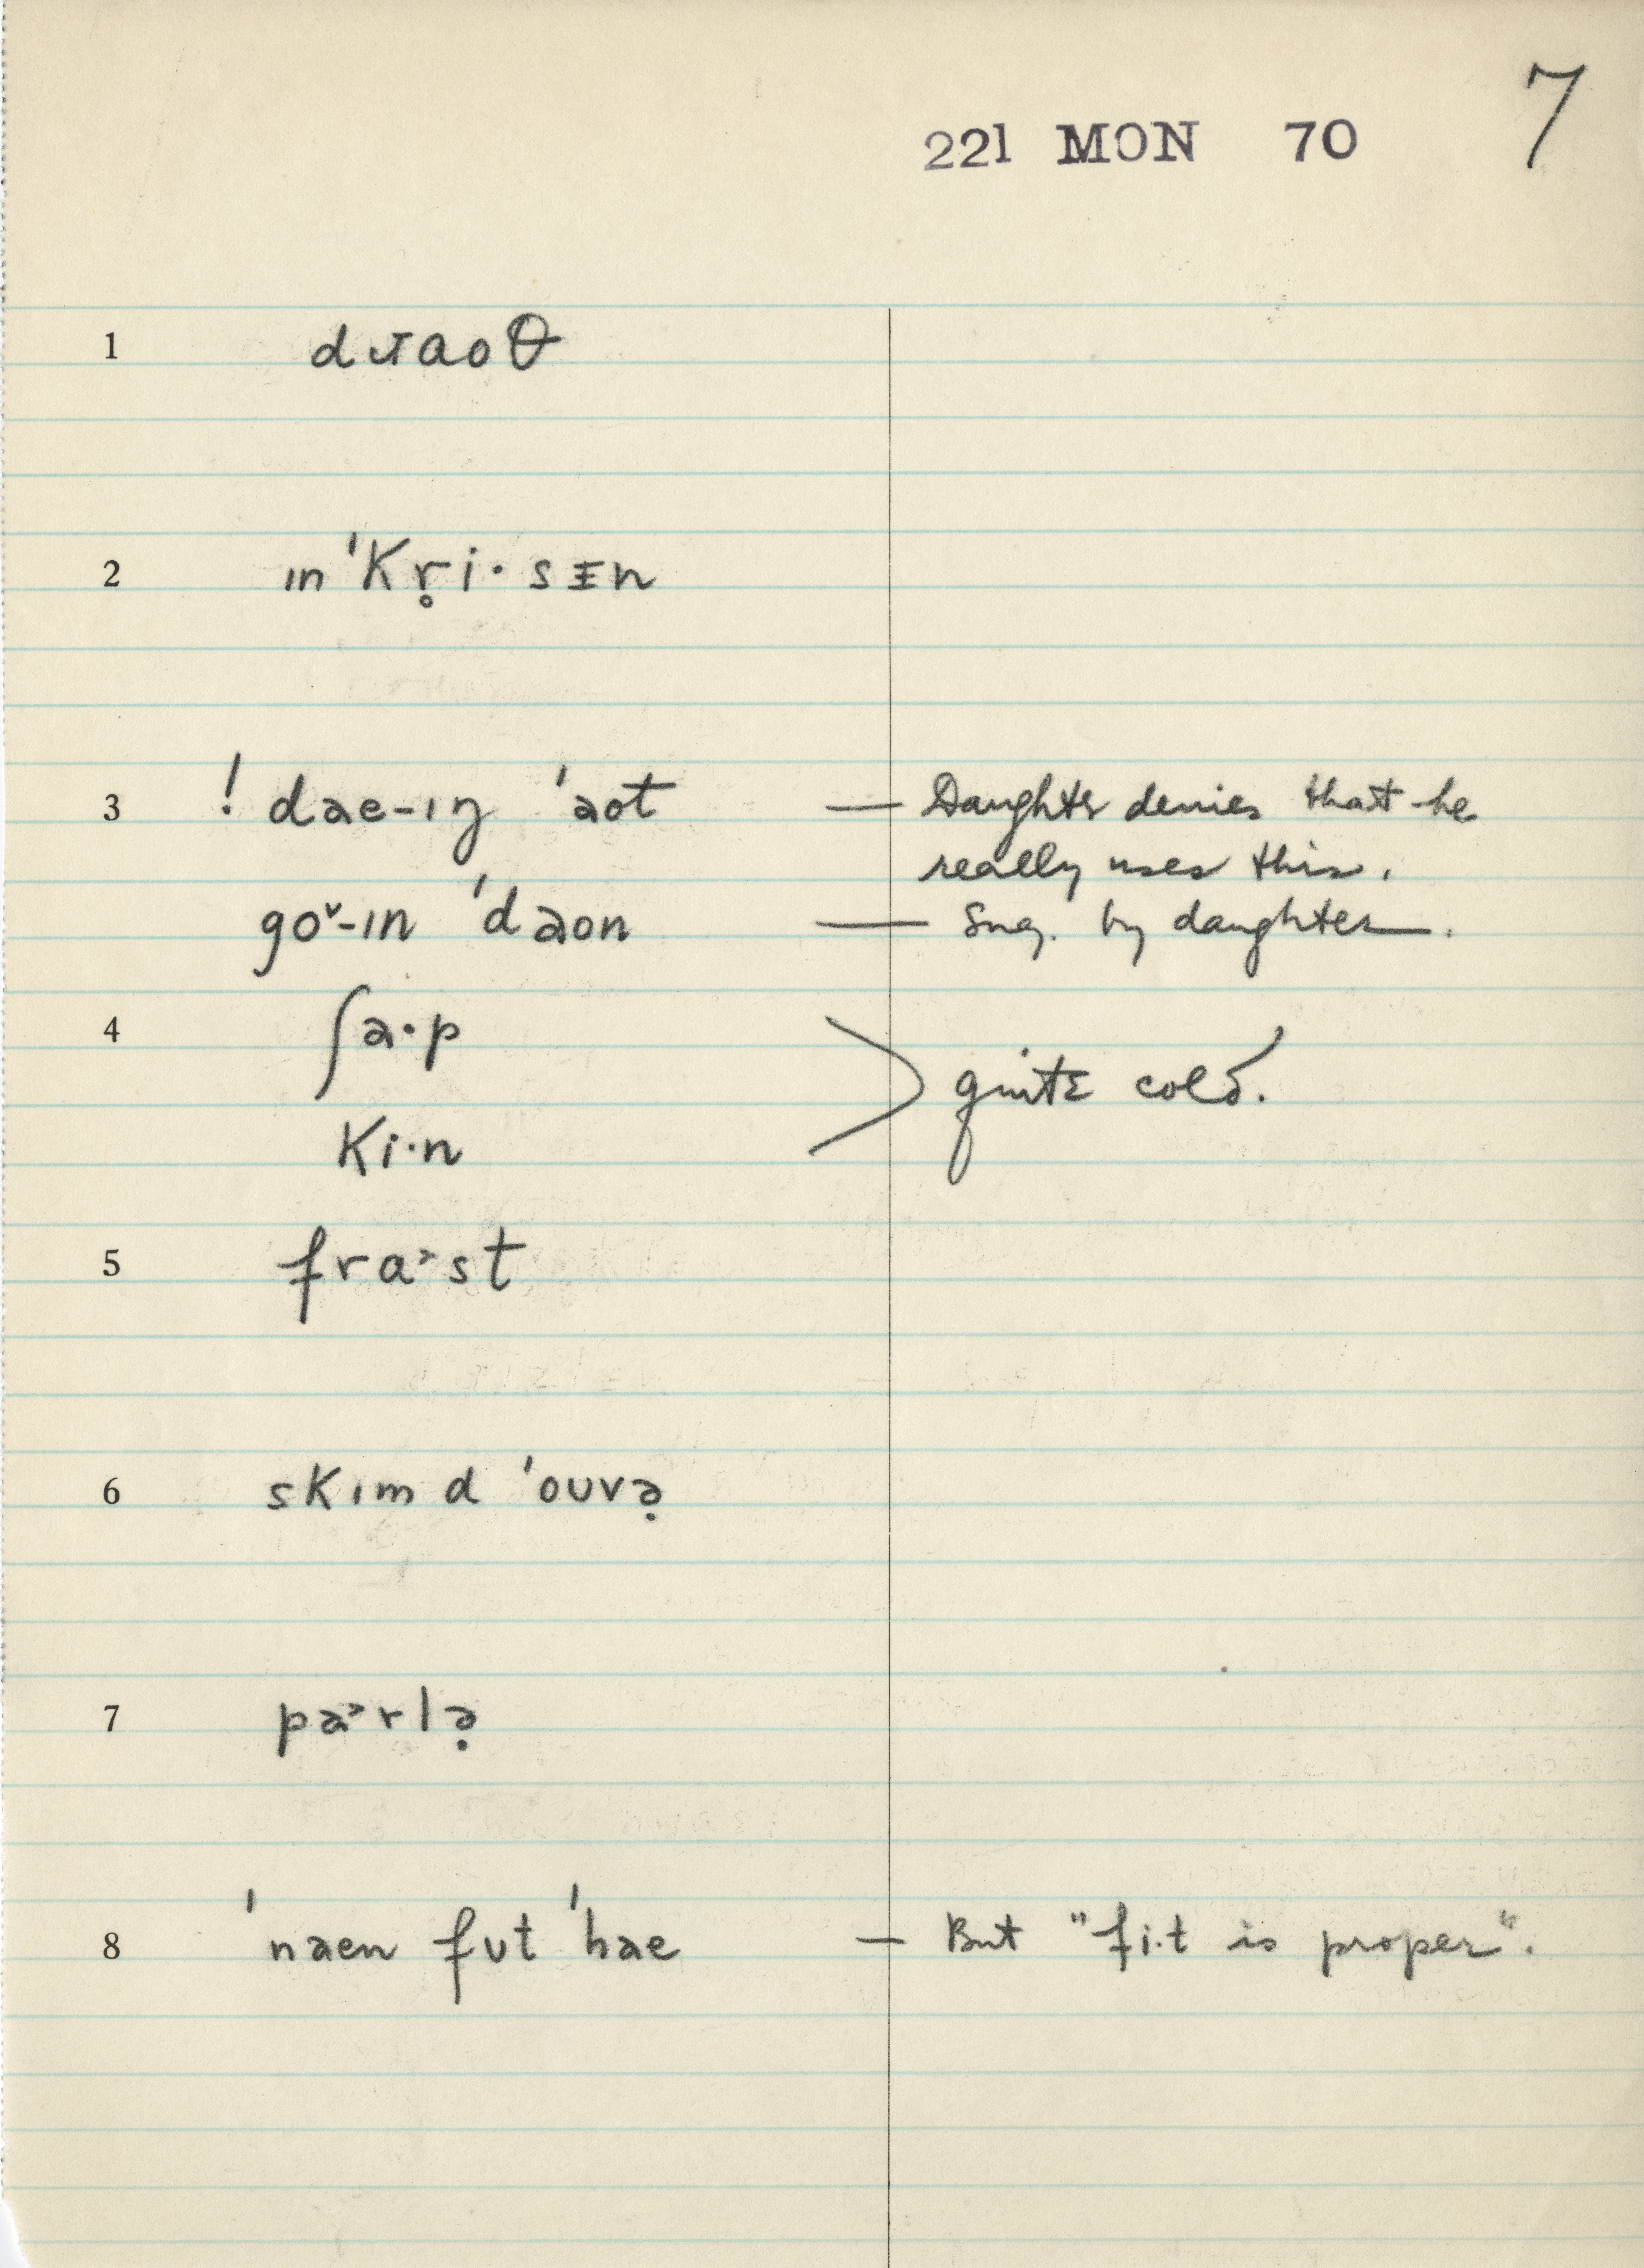 221 MON 70 7
1 dɹaoθ
2 ɪn ˈkr̥i·sɪn
3 ! dae-ɪŋ ˈaot — Daughter denies that he
really uses this.
go˅-ɪn ˈdaon — Sug. by daughter.
4 ʃa·p
quite cold.
ki·n
5 fra˃st
6 skɪm d ˈouvə̣
7 pa˃rlə̣
8 ˈnaen fut ˈhae — But "fi·t is proper".